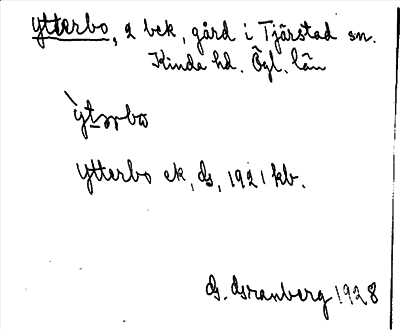 Ytterbo, 2 bek, gård i Tjärstad sn.
Kinda hd. Ögl. län
Ytterbo ek, ds, 1921 kb.
Granberg 1928